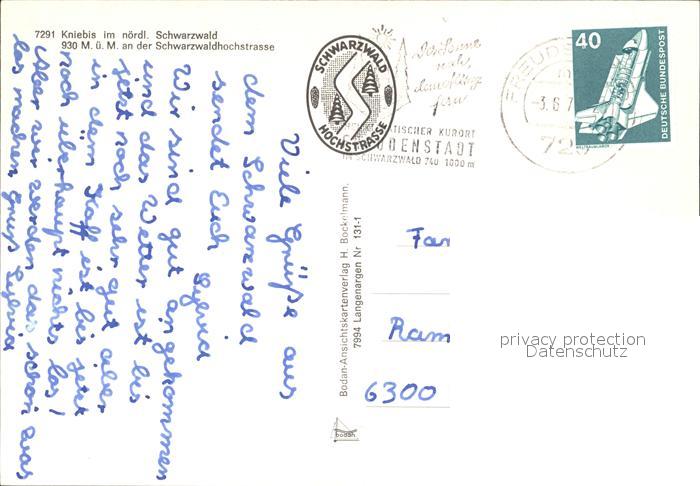 7291 Kniebis im nördl. Schwarzwald
930 M. ü. M. an der Schwarzwaldhochstrasse
Viele Grüße aus
dem Schwarzwald
sendet Euch
Sylvia
Wir sind gut angekommen
und das Wetter ist bis
jetzt noch sehr gut aber
in dem Kaff ist bis jetzt
noch überhaupt nichts los!
Aber wir werden das schon was
los machen Gruß Sylvia
SCHWARZWALD
HOCHSTRASSE
TISCHER KURORT
UDENSTADT
IM SCHWARZWALD 740 1000 m
FREUDE
-3.6.7
72
40
DEUTSCHE BUNDESPOST
WELTRAUMLABOR
Bodan-Ansichtskartenverlag H. Bockelmann,
7994 Langenargen Nr 131-1
bodan
Fam
Ram
6300
privacy protection
Datenschutz